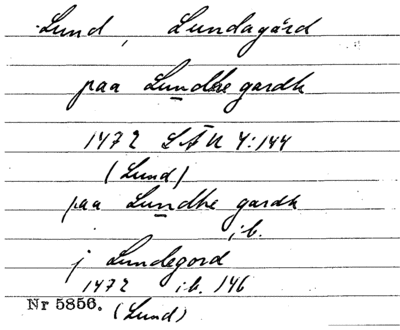 Lund, Lundagård
paa Lundhe gardh
1472 LÄU 4:144
(Lund)
paa Lundhe gardh
ib.
j Lundegord
1472 ib. 146
Nr 5856. (Lund)